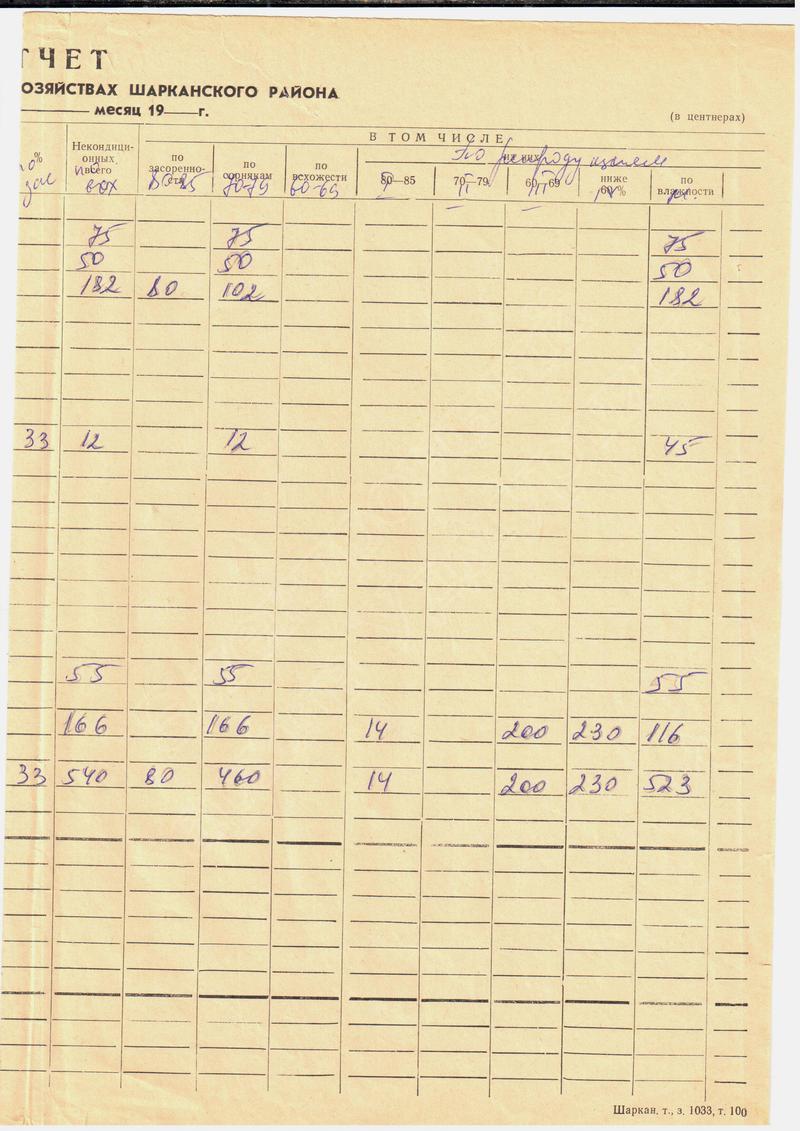 ТЧЕТ
ОЗЯЙСТВАХ ШАРКАНСКОГО РАЙОНА
месяц 19 г.
(в центнерах)
% Некондици-онных всего В ТОМ ЧИСЛЕ
по засоренно- по сорнякам по всхожести 80—85 70—79 60—69 ниже 60% по влажности
80-85 70-79 60-69 I II III IV
75 75 75
50 50 50
182 80 102 182
33 12 12 45
55 55 55
166 166 14 200 230 116
33 540 80 460 14 200 230 523
Шаркан. т., з. 1033, т. 100